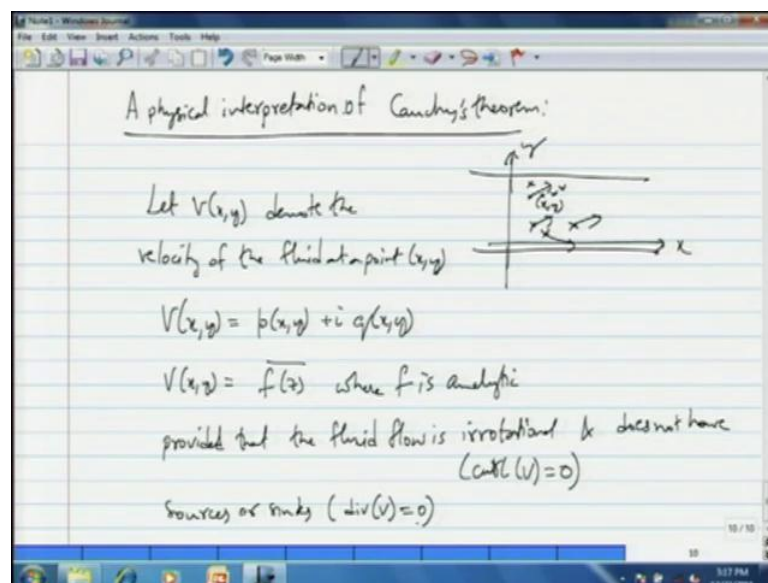 Note1 - Windows Journal
File Edit View Insert Actions Tools Help
Page Width
A physical interpretation of Cauchy's theorem:
y
v
(x,y)
x
Let V(x,y) denote the
velocity of the fluid at a point (x,y)
V(x,y) = p(x,y) + i q(x,y)
V(x,y) = \overline{f(z)} where f is analytic
provided that the fluid flow is irrotational & does not have
(curl(V)=0)
sources or sinks (div(V)=0)
10/10
10
3:17 PM